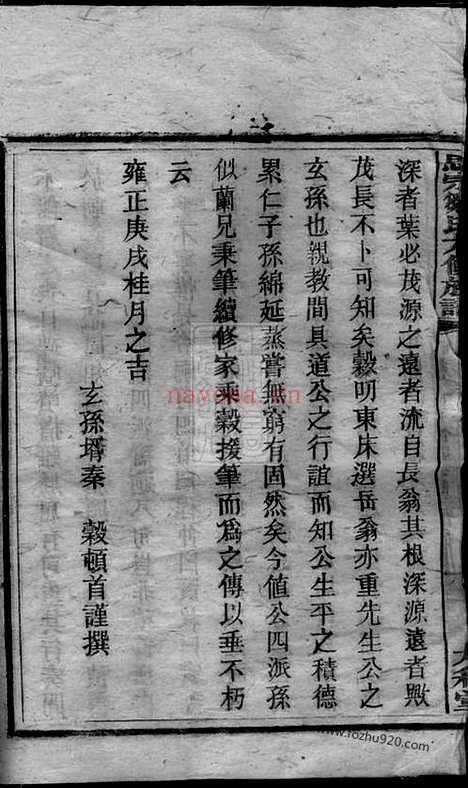 深者葉必茂源之遠者流自長翁其根深源遠者歟
茂長不卜可知矣榖叨東床選岳翁亦重先生公之
玄孫也親教間具道公之行誼而知公生平之積德
累仁子孫綿延蒸嘗無窮有固然矣今値公四派孫
似蘭兄秉筆續修家乘榖援筆而爲之傳以垂不朽
云
雍正庚戌桂月之吉
玄孫壻秦 榖頓首謹撰
nayona.cn
www.fozhu920.com